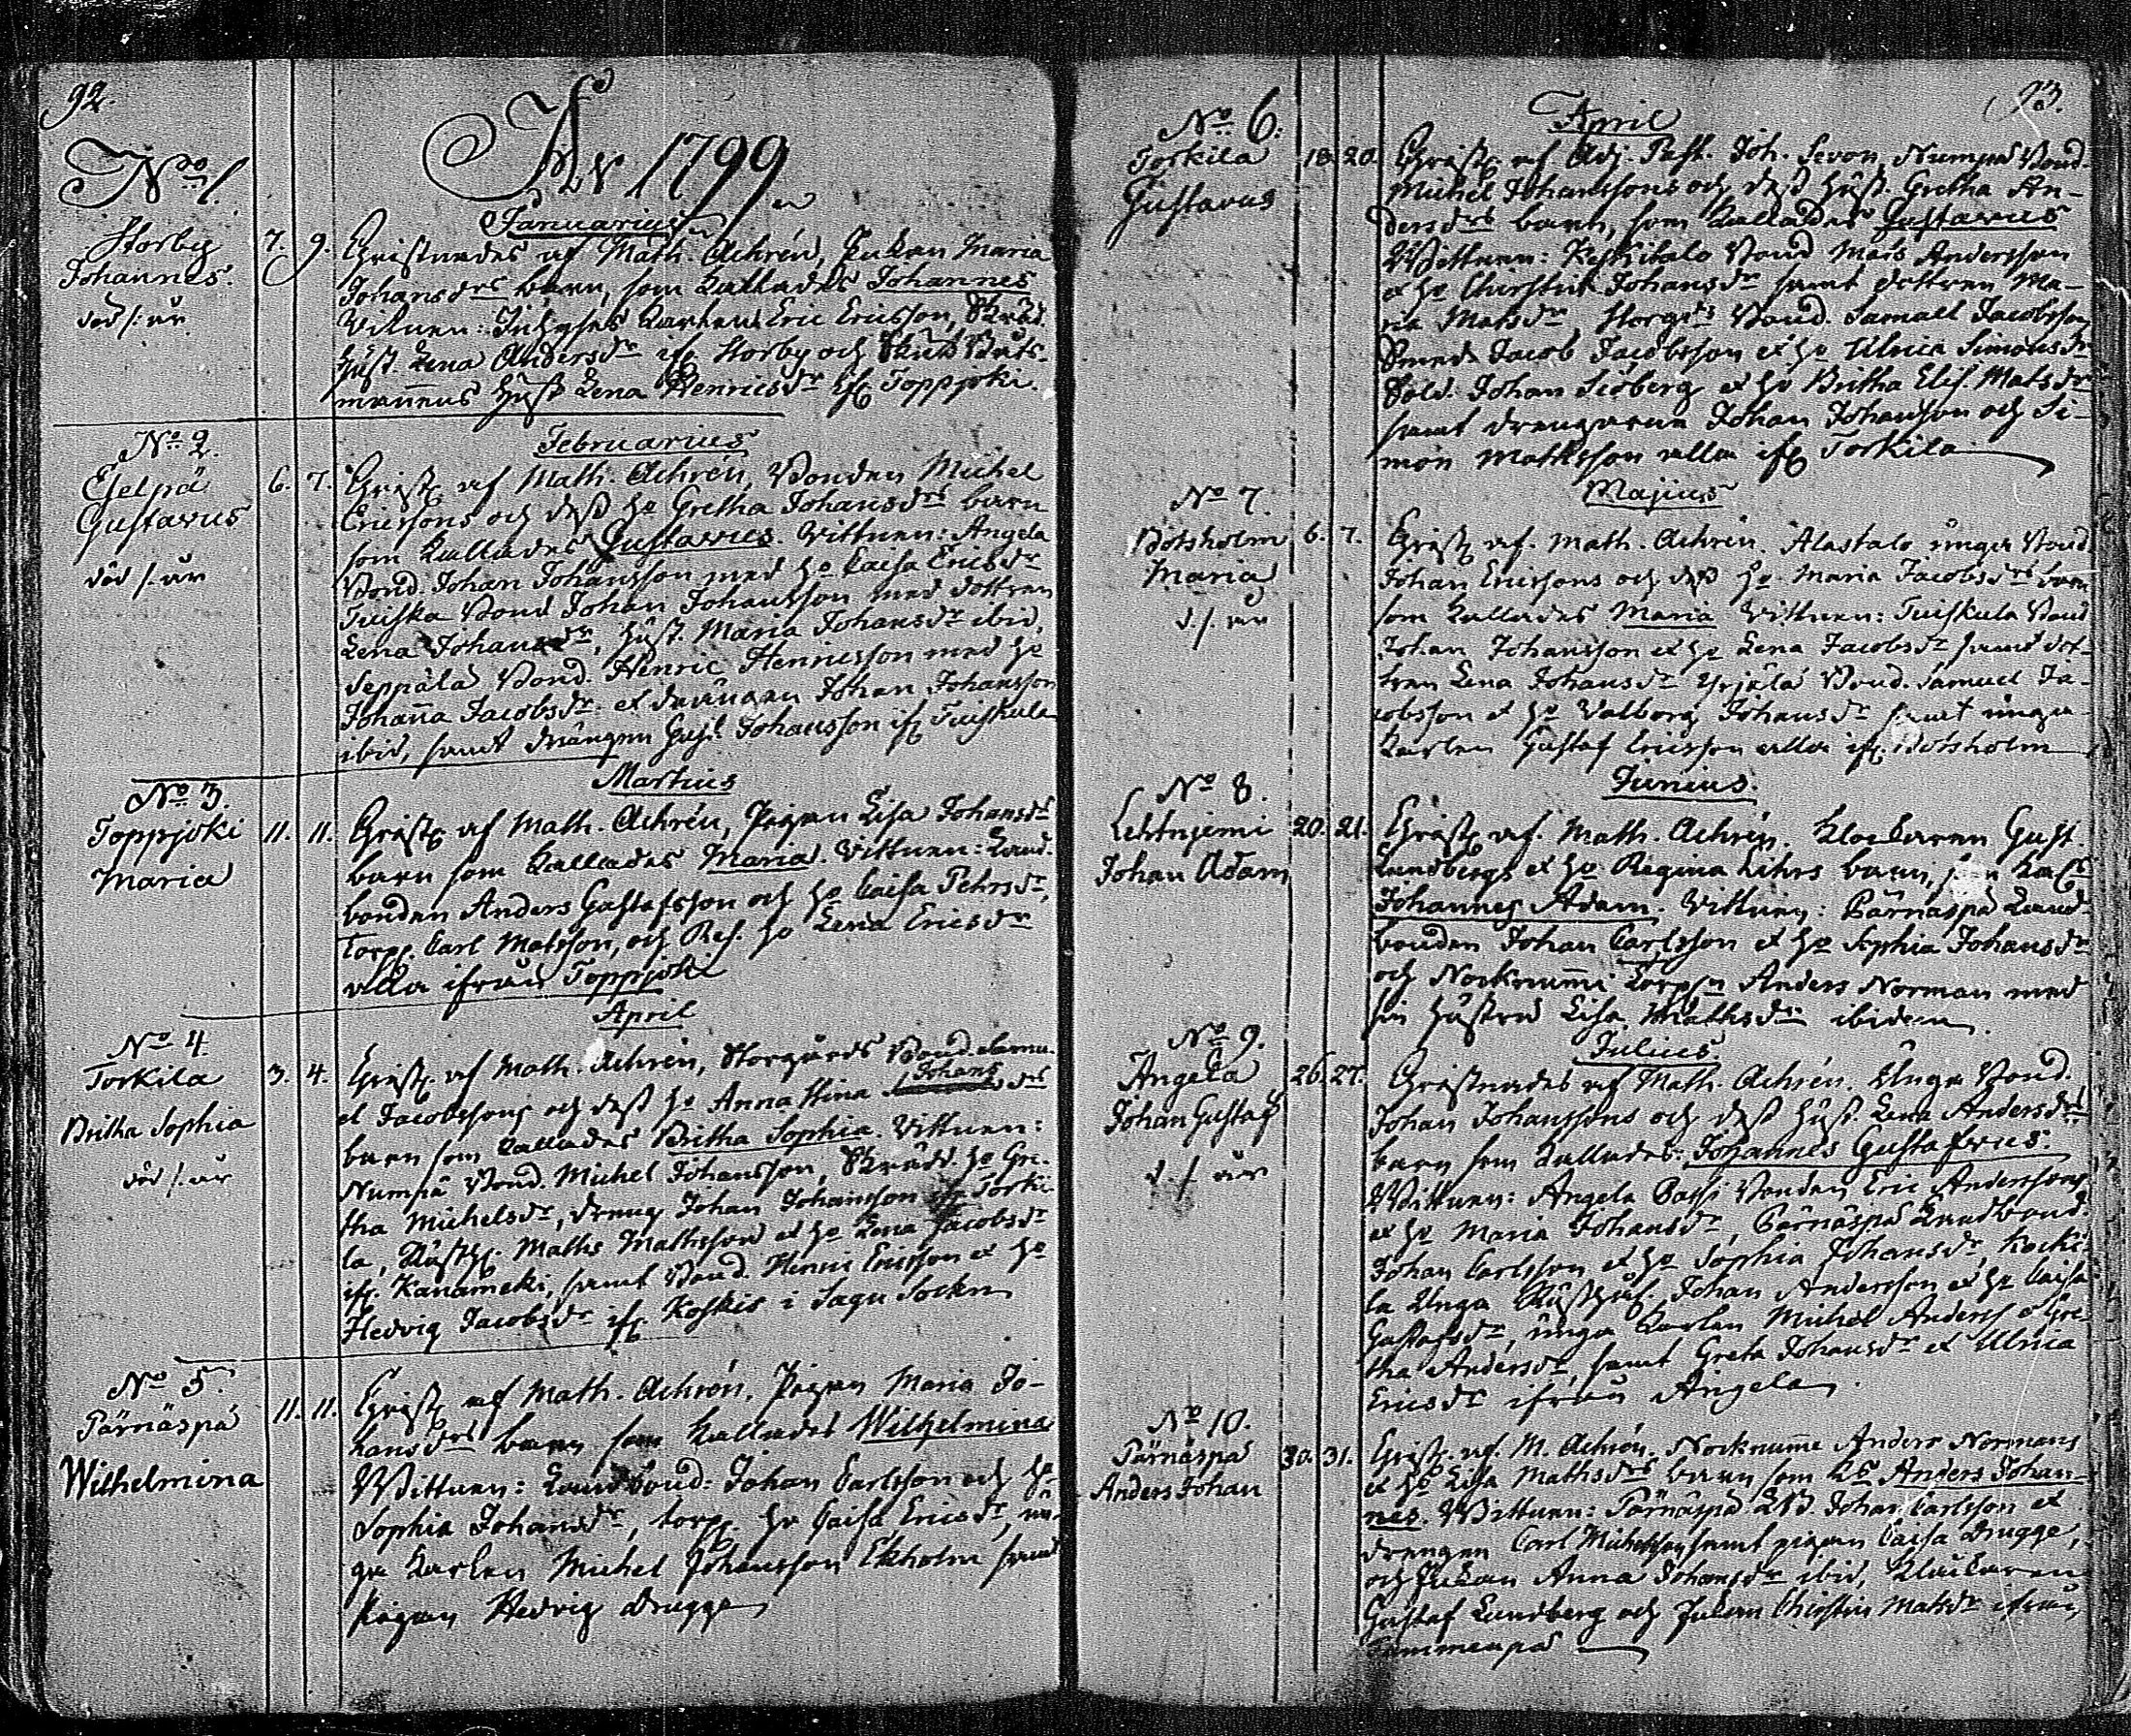 92.
Åhr 1799
No 1.
Januarius
Storby 7. 9. Christnades af Math. Achrén, Enkan Maria
Johannes. Johansdrs barn, som kallades Johannes
död /: år Vitnen: Inhyses Karlen Eric Ericsson,
hust. Lena Andersdr ifr. Storby och Båts-
mannens hust Lena Henricsdr ifr Toppjoki.
No 2.
Februarius
Eselpä 6. 7. Christ. af Math. Achrén, Bonden Michel
Gustavus Ericssons och dess ho Gretha Johansdrs barn
som kallades Gustavus. Vittnen: Angela
död /: år Bond. Johan Johansson med ho Caisa Ericsdr
Tuiska Bond Johan Johansson med dottren
Lena Johansdr, hust. Maria Johansdr ibid,
Seppälä Bond. Henric Henricsson med ho
Johanna Jacobsdr et drängen Johan Johansson
ibid, samt drängen Gust. Johansson ifr Tuiskula
Martius
No 3.
Toppjoki 11. 11. Christ. af Math. Achrén, Pigan Lisa Johansdrs
Maria barn som kallades Maria. Vittnen: Land-
bonden Anders Gustafsson och ho Caisa Pehrsdr,
Torpp. Carl Matsson, och Res. ho Lena Ericsdr
alla ifrån Toppjoki
April
No 4.
Torkila 3. 4. Christ. af Math. Achrén, Storgårds Bond. Samu-
el Jacobssons och dess ho Anna Stina Johans drs
Britha Sophia barn som kallades Britha Sophia. Vittnen:
död /: år Numpä Bond. Michel Johansson, Skrädd. ho Gre-
tha Michelsdr, dreng Johan Johansson ifr Torki-
la, Rusth. Maths Mathsson et ho Lena Jacobsdr
ifr. Kanamäki, samt Bond. Henric Ericsson et ho
Hedvig Jacobsdr ifr Koskis i Sagu Sockn
No 5.
Pärnäspä 11. 11. Christ. af Math. Achrén, Pigan Maria Jo-
hansdrs barn som kallades Wilhelmina
Wilhelmina Wittnen: Landbond: Johan Carlsson och ho
Sophia Johansdr, torpp. ho Caisa Ericsdr, un-
ga Karlen Michel Johansson Ekholm samt
Pigan Hedvig Drugge
93.
No 6:
April
Torkila 18. 20. Christ. af Adj. Past. Joh. Sevon, Numpä Bond.
Gustavus Michel Johanssons och dess hust. Gretha An-
dersdrs barn, som kallades Gustavus
Wittnen: Keskitalo Bond Mats Andersson
et ho Christin Johansdr samt dottren Ma-
ria Matsdr, Storgds Bond. Samuel Jacobsson
Smeden Jacob Jacobsson et ho Ulrica Simonsdr
Sold. Johan Siöberg et ho Britha Elis. Matsdr
samt drengarne Johan Johansson och Si-
mon Mathsson alla ifr Torkila
No 7.
Majus
Botsholm 6. 7. Christ af. Math. Achrén. Alastalo unga Bond
Maria Johan Ericssons och dess ho Maria Jacobsdrs barn
d. /: år som kallades Maria Vittnen: Tuiskula Bond
Johan Johansson et ho Lena Jacobsdr samt dot-
tren Lena Johansdr Yrjälä Bond. Samuel Ja-
cobsson et ho Valborg Johansdr samt unga
Karlen Gustaf Ericsson alla ifr. Botsholm
Junius.
No 8.
Lehtnjemi 20. 21. Christ af. Math. Achrén. Klockaren Gust.
Johan Adam Lundbergs et ho Regina Lihrs barn, som kals
Johannes Adam. Vittnen: Pärnäspä Land-
bonden Johan Carlsson et ho Sophia Johansdr
och Nocknummi Torpn Anders Norman med
sin hustru Lisa Mathsdr ibidem.
No 9.
Julius
Angela 26. 27. Christnades af Math. Achrén. Unga Bond.
Johan Gustaf Johan Johanssons och dess hust. Lena Andersdrs
d. /: år barn som kallades: Johannes Gustafvus
Wittnen: Angela Bassi Bonden Eric Andersson
et ho Maria Johansdr, Pärnäspä Landbond.
Johan Carlsson et ho Sophia Johansdr, Kocki-
la Unga Rusthål. Johan Andersson et ho Caisa
Gustafsdr, unga Karlen Michel Anderss o Gre-
tha Andersdr, samt Greta Johansdr et Ulrica
Ericsdr ifrån Angela.
No 10.
Pärnäspä 30. 31. Christ. af. M. Achrén. Nocknumme Anders Normans
Anders Johan et ho Lisa Mathsdrs barn som ks Anders Johan-
nes. Wittnen: Pärnäspä LB. Johan Carlsson et
drengen Carl Michelsson samt pigan Caisa Drugge,
och Enkan Anna Johansdr ibid, Klockaren
Gustaf Lundberg och Enkan Christin Matsdr ifrån